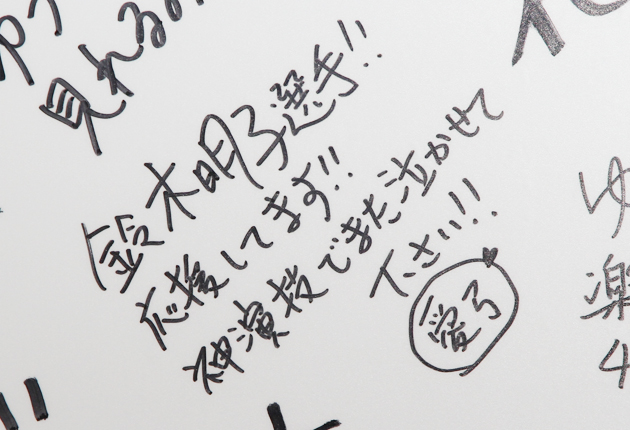 見れる
鈴木明子選手!!
応援してます!!
神演技でまた泣かせて
下さい!!
愛弓
ゆ
楽
4